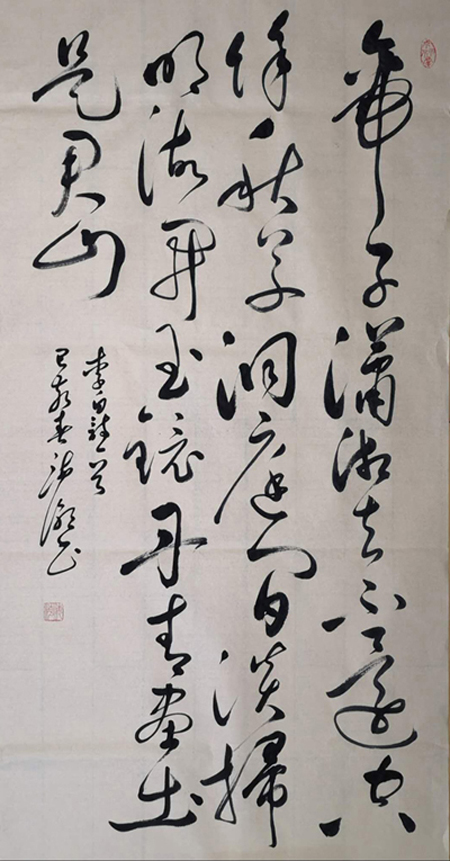 帝子瀟湘去不還空
餘秋草洞庭間淡掃
明湖開玉鏡丹青畫出
是君山
李白詩一首
己亥春